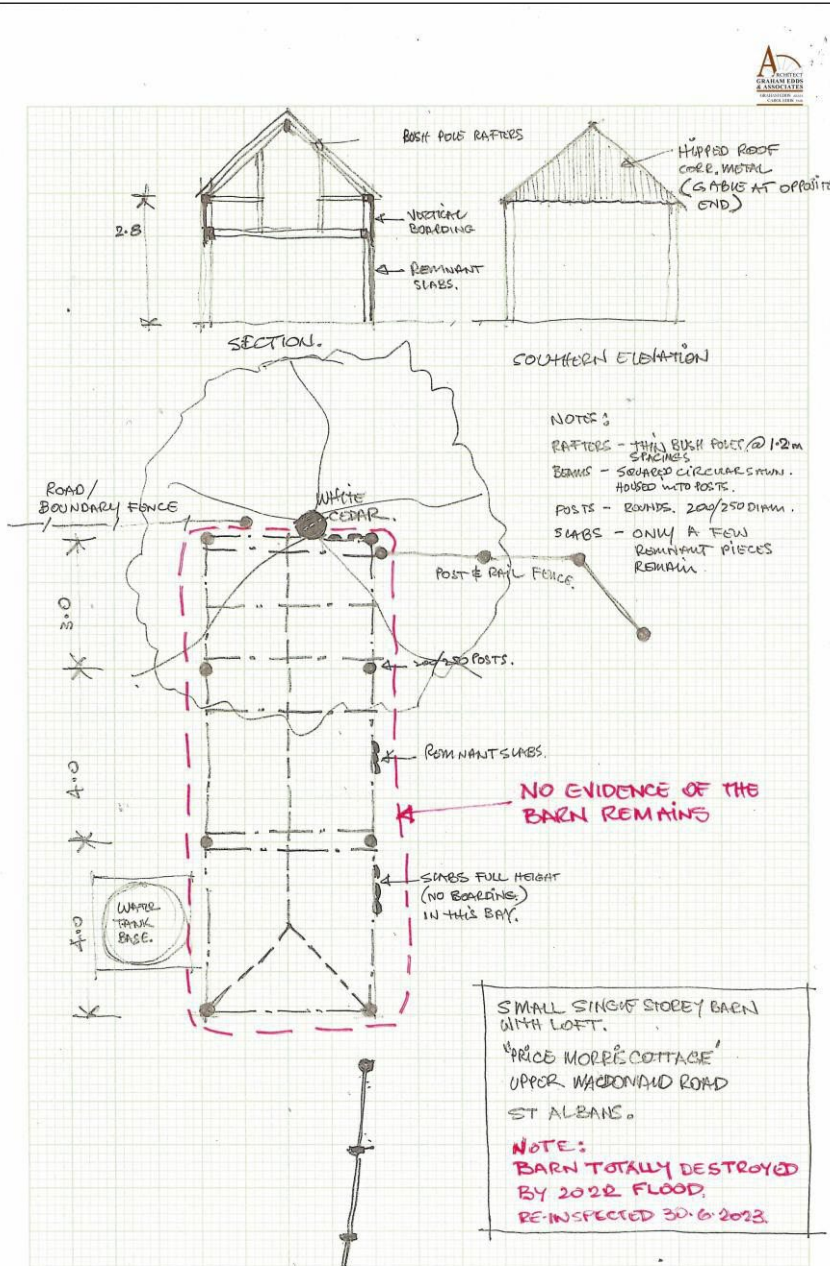 ARCHITECT
GRAHAM EDDS
& ASSOCIATES
BUSH POLE RAFTERS
HIPPED ROOF
CORR. METAL
(GABLE AT OPPOSITE
END)
2.8
VERTICAL
BOARDING
REMNANT
SLABS.
SECTION.
SOUTHERN ELEVATION
NOTES:
RAFTERS - THIN BUSH POLES @ 1.2m
SPACINGS
BEAMS - SQUARED CIRCULAR SAWN.
HOUSED INTO POSTS.
POSTS - ROUNDS. 200/250 DIAM.
SLABS - ONLY A FEW
REMNANT PIECES
REMAIN.
ROAD/
BOUNDARY FENCE
WHITE
CEDAR.
POST & RAIL FENCE.
3.0
200/250 POSTS.
REMNANT SLABS.
4.0
NO EVIDENCE OF THE
BARN REMAINS
SLABS FULL HEIGHT
(NO BOARDING)
IN THIS BAY.
WATER
TANK
BASE.
4.0
SMALL SINGLE STOREY BARN
WITH LOFT.
"PRICE MORRIS COTTAGE"
UPPER MACDONALD ROAD
ST ALBANS.
NOTE:
BARN TOTALLY DESTROYED
BY 2022 FLOOD.
RE-INSPECTED 30.6.2023.